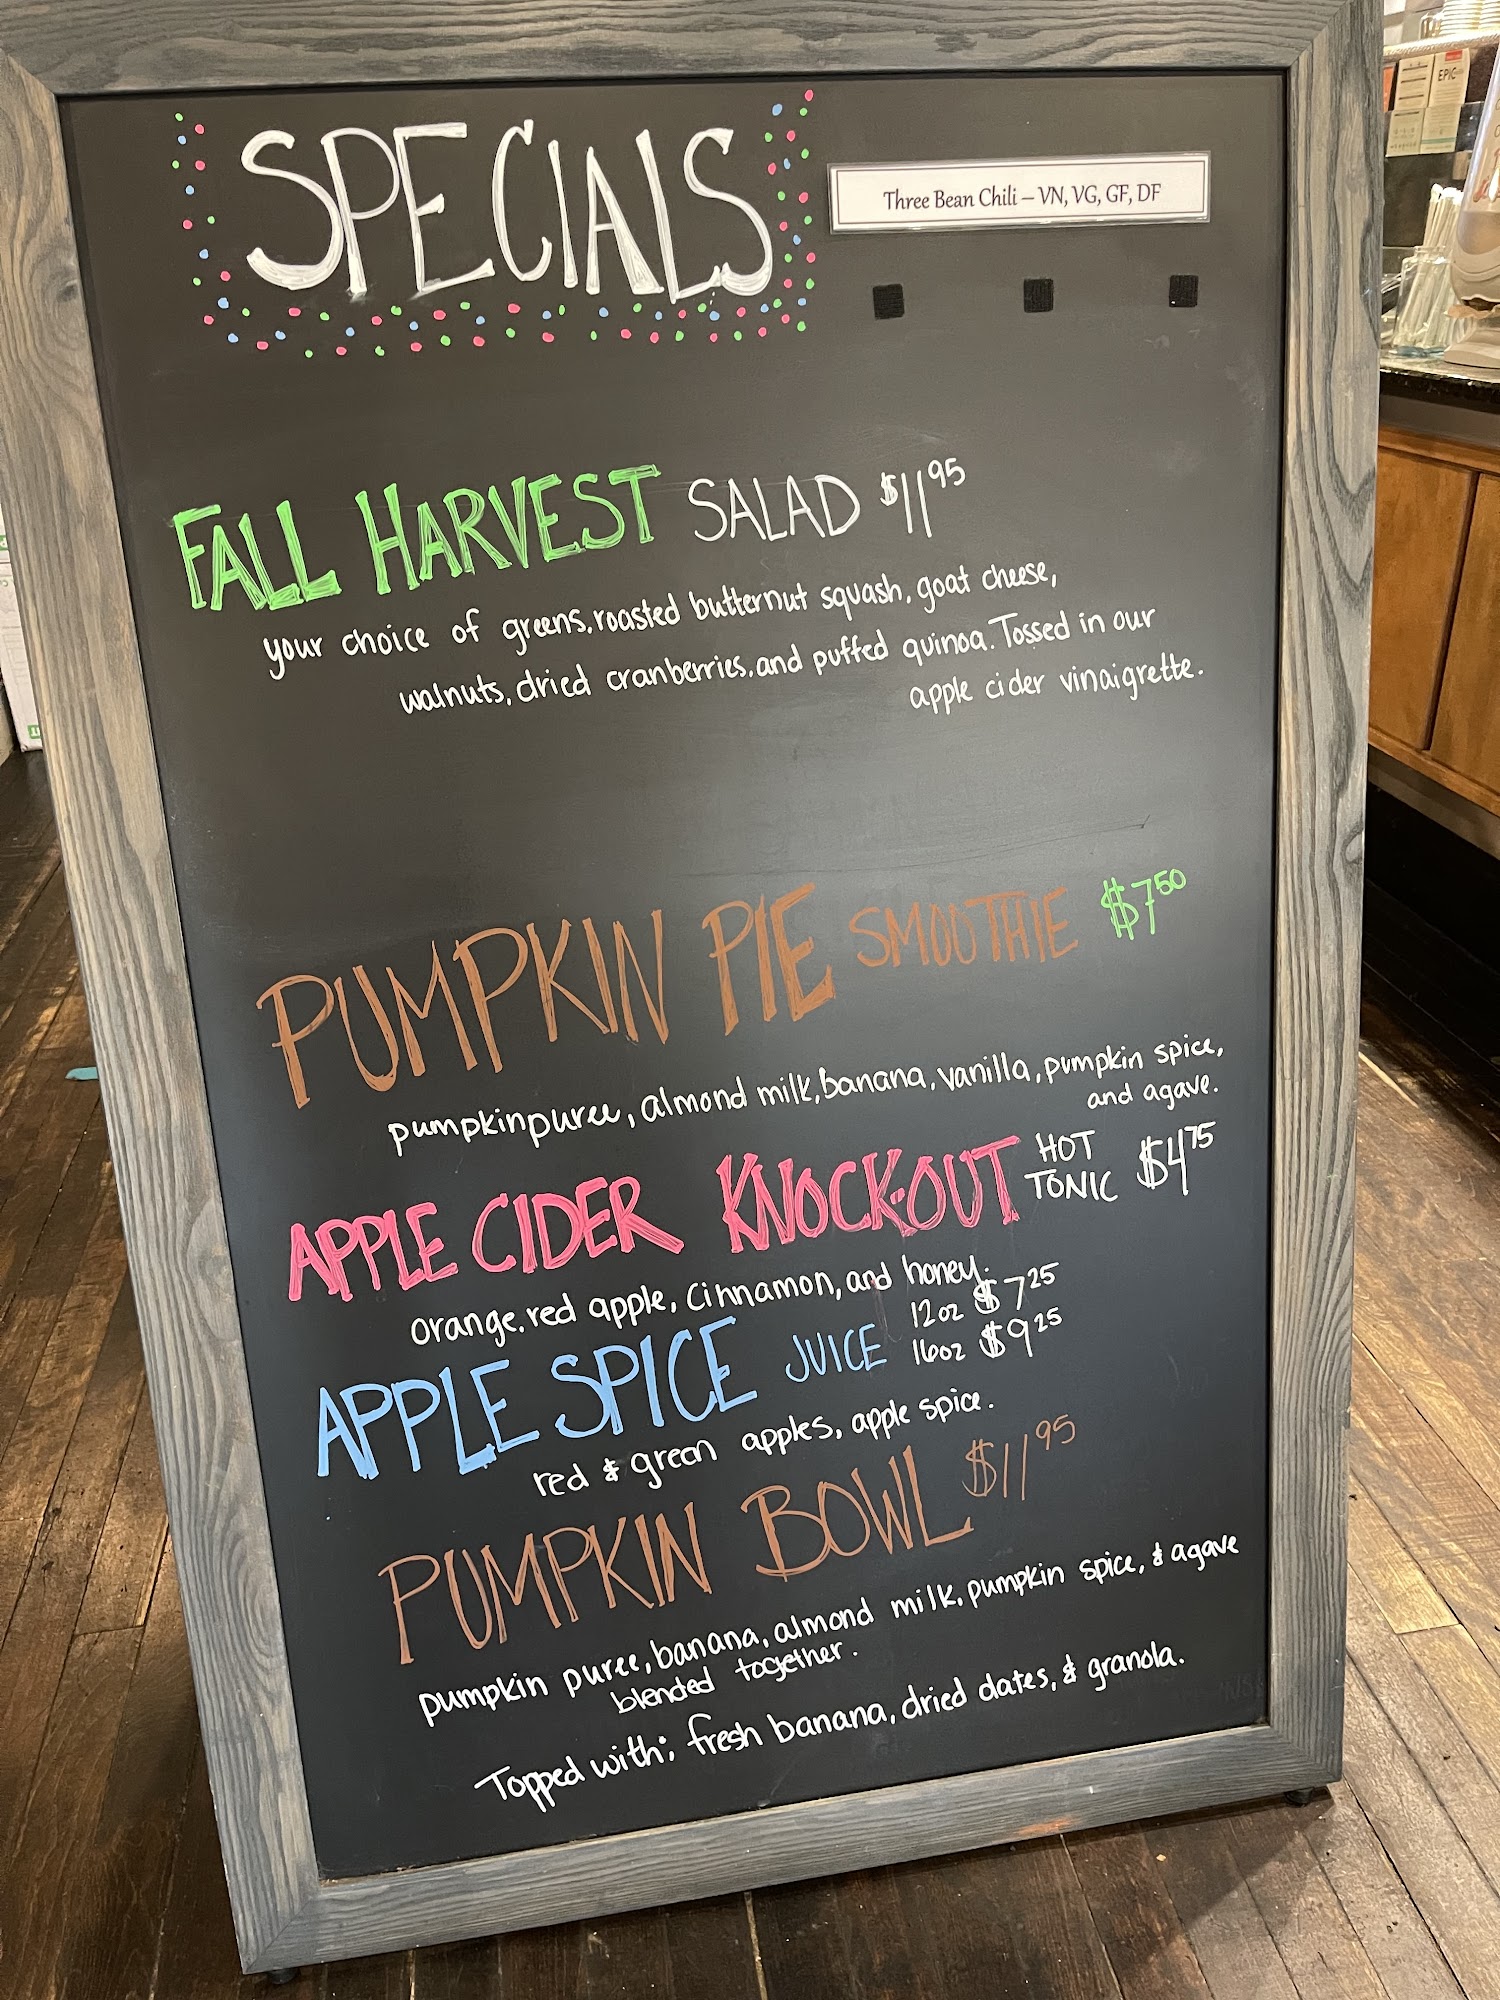 SPECIALS
Three Bean Chili – VN, VG, GF, DF
FALL HARVEST SALAD $11.95
your choice of greens, roasted butternut squash, goat cheese,
walnuts, dried cranberries, and puffed quinoa. Tossed in our
apple cider vinaigrette.
PUMPKIN PIE SMOOTHIE $7.50
pumpkin puree, almond milk, banana, vanilla, pumpkin spice,
and agave.
APPLE CIDER KNOCK-OUT HOT TONIC $4.75
orange, red apple, cinnamon, and honey.
APPLE SPICE JUICE 12oz $7.25
16oz $9.25
red & green apples, apple spice.
PUMPKIN BOWL $11.95
pumpkin puree, banana, almond milk, pumpkin spice, & agave
blended together.
Topped with; fresh banana, dried dates, & granola.
EPIC